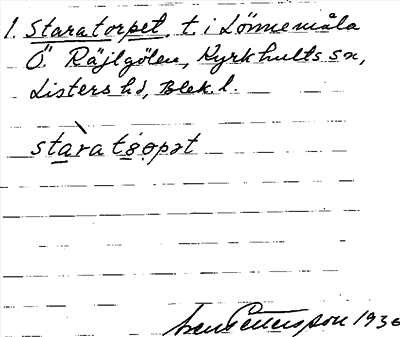 1. Staratorpet, t. i Lönnemåla
Ö. Räjlgölen, Kyrkhults sn,
Listers hd, Blek. l.
stàratsopət
Pettersson 1936